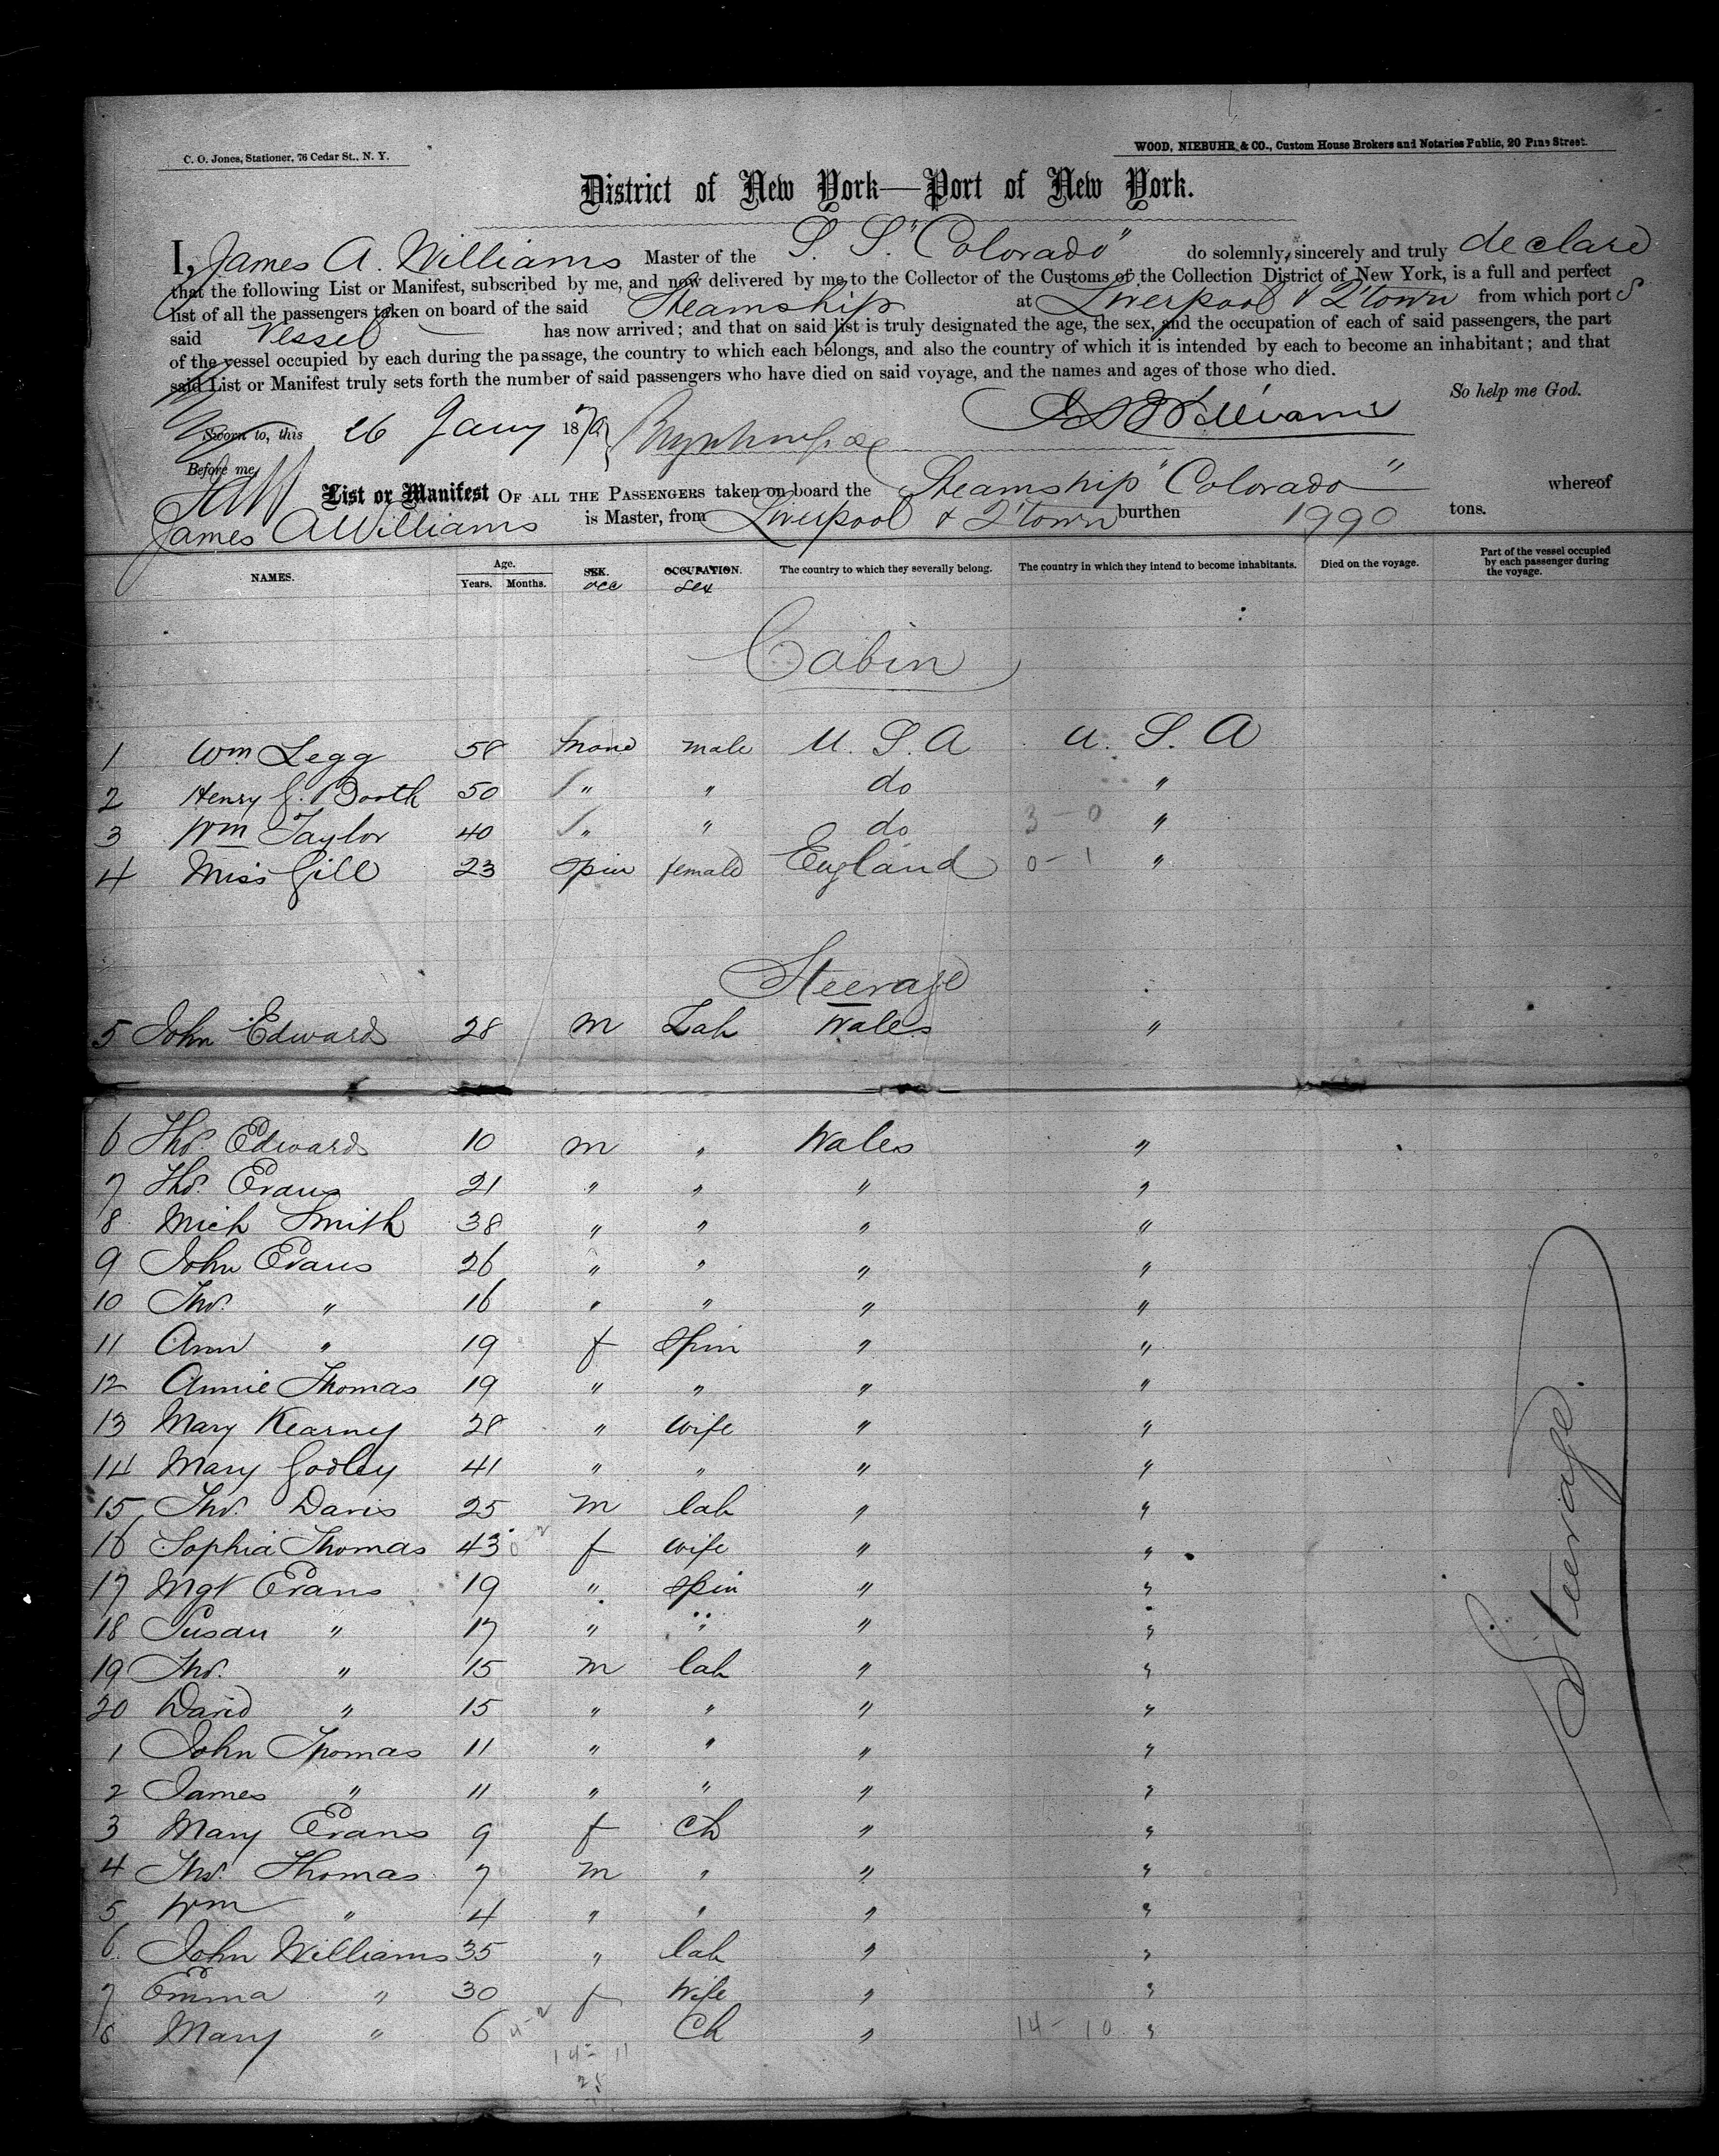 C. O. Jones, Stationer, 76 Cedar St., N. Y.
WOOD, NIEBUHR & CO., Custom House Brokers and Notaries Public, 20 Pine Street.
District of New York—Port of New York.
I, James A. Williams Master of the S. S. "Colorado" do solemnly, sincerely and truly declare
that the following List or Manifest, subscribed by me, and now delivered by me to the Collector of the Customs of the Collection District of New York, is a full and perfect
list of all the passengers taken on board of the said Steamship at Liverpool & Q'town from which port s
said Vessel has now arrived; and that on said list is truly designated the age, the sex, and the occupation of each of said passengers, the part
of the vessel occupied by each during the passage, the country to which each belongs, and also the country of which it is intended by each to become an inhabitant; and that
said List or Manifest truly sets forth the number of said passengers who have died on said voyage, and the names and ages of those who died.
So help me God.
Sworn to, this 26 Jany 1870
Before me,
List or Manifest OF ALL THE PASSENGERS taken on board the Steamship "Colorado" whereof
James A Williams is Master, from Liverpool & Q'town burthen 1990 tons.
NAMES. Age. Years. Months. SEX. occ OCCUPATION. sex The country to which they severally belong. The country in which they intend to become inhabitants. Died on the voyage. Part of the vessel occupied by each passenger during the voyage.
Cabin
1 Wm Legg 58 none male U. S. A U. S. A
2 Henry J. Booth 50 " " do "
3 Wm Taylor 40 " " do 3-0 "
4 Miss Gill 23 spin female England 0-1 "
Steerage
5 John Edwards 28 m Lab Wales "
6 Thos. Edwards 10 m " Wales "
7 Thos. Evans 21 " " " "
8 Mich Smith 38 " " " "
9 John Evans 26 " " " "
10 Thos. " 16 " " " "
11 Ann " 19 f Spin " "
12 Annie Thomas 19 " " " "
13 Mary Kearney 28 " wife " "
14 Mary Godley 41 " " " "
15 Thos. Davis 25 m lab " "
16 Sophia Thomas 43 f wife " "
17 Mgt Evans 19 " spin " "
18 Susan " 17 " " " "
19 Thos. " 15 m lab " "
20 David " 15 " " " "
1 John Thomas 11 " " " "
2 James " 11 " " " "
3 Mary Evans 9 f Ch " "
4 Thos. Thomas 7 m " " "
5 Wm " 4 " " " "
6 John Williams 35 " lab " "
7 Emma " 30 f Wife " "
8 Mary " 6 Ch " 14-10 "
14-11
25
Steerage.